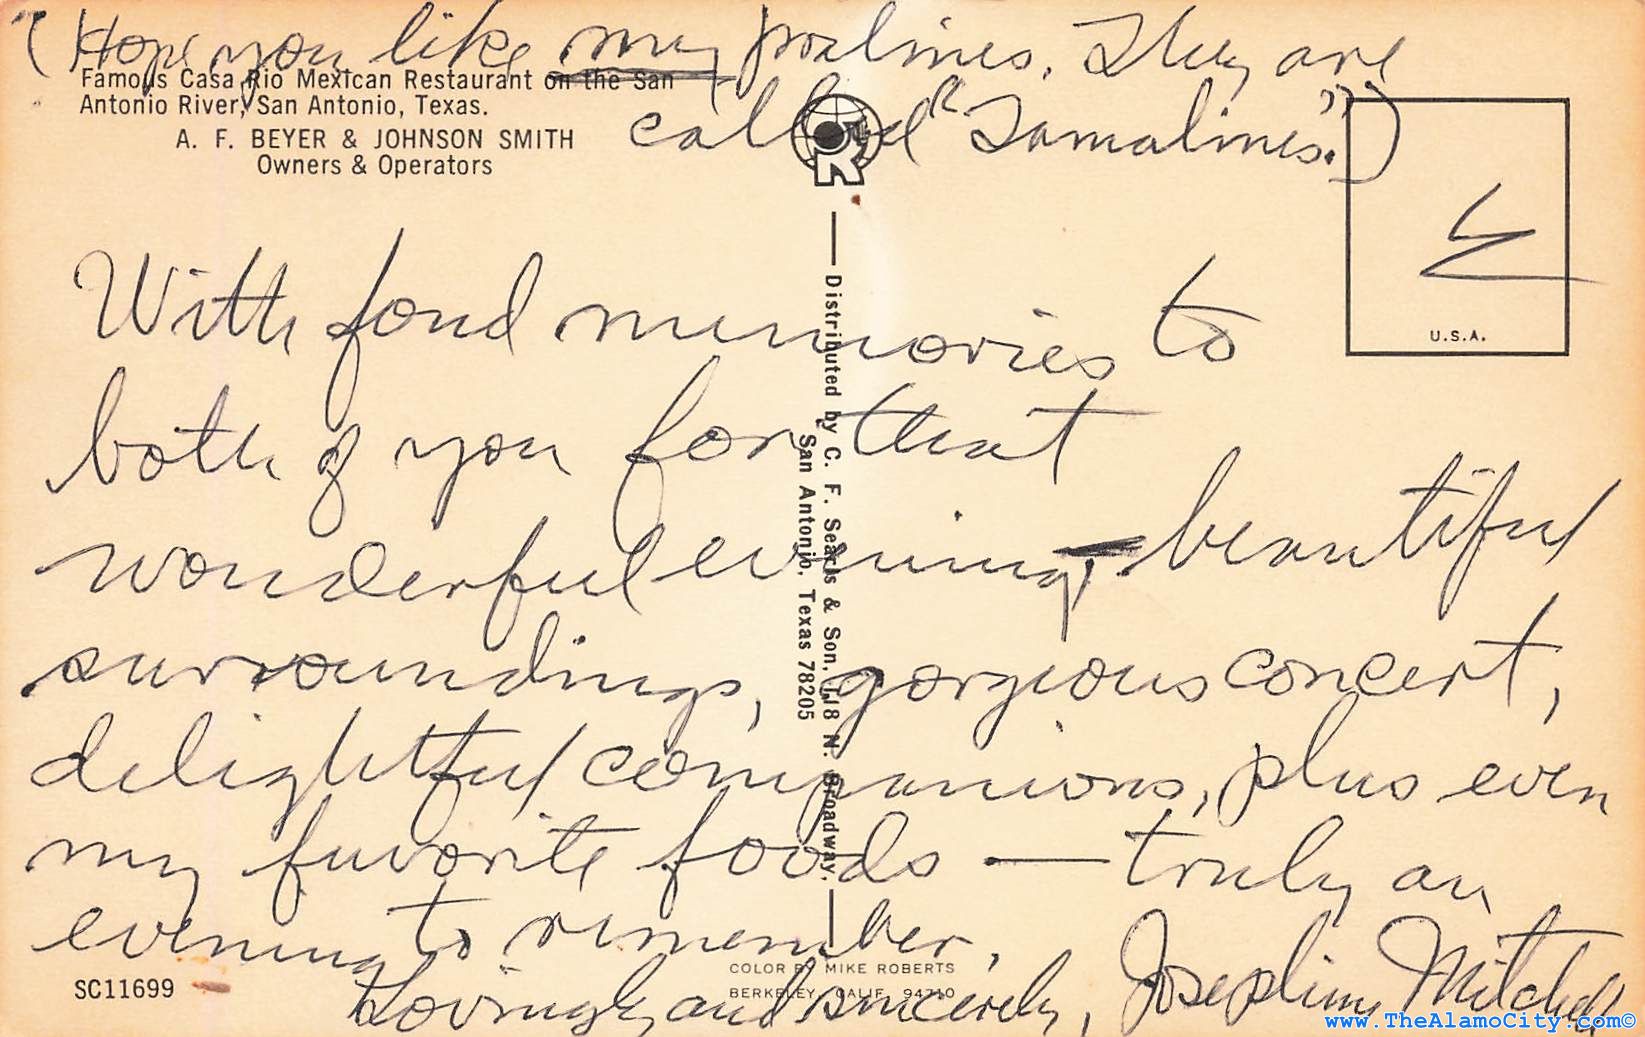 (Hope you like my pralines. They are
called "Tamalines.")
Famous Casa Rio Mexican Restaurant on the San
Antonio River, San Antonio, Texas.
A. F. BEYER & JOHNSON SMITH
Owners & Operators
R
U.S.A.
With fond memories to
both of you for that
wonderful evening, beautiful
surroundings, gorgious concert,
delightful companions, plus even
my favorite foods — truly an
evening to remember.
Lovingly and sincerely, Josephine Mitchell
Distributed by C. F. Sears & Son, 118 N. Broadway.
San Antonio, Texas 78205
COLOR BY MIKE ROBERTS
BERKELEY, CALIF. 94710
SC11699
www.TheAlamoCity.com©